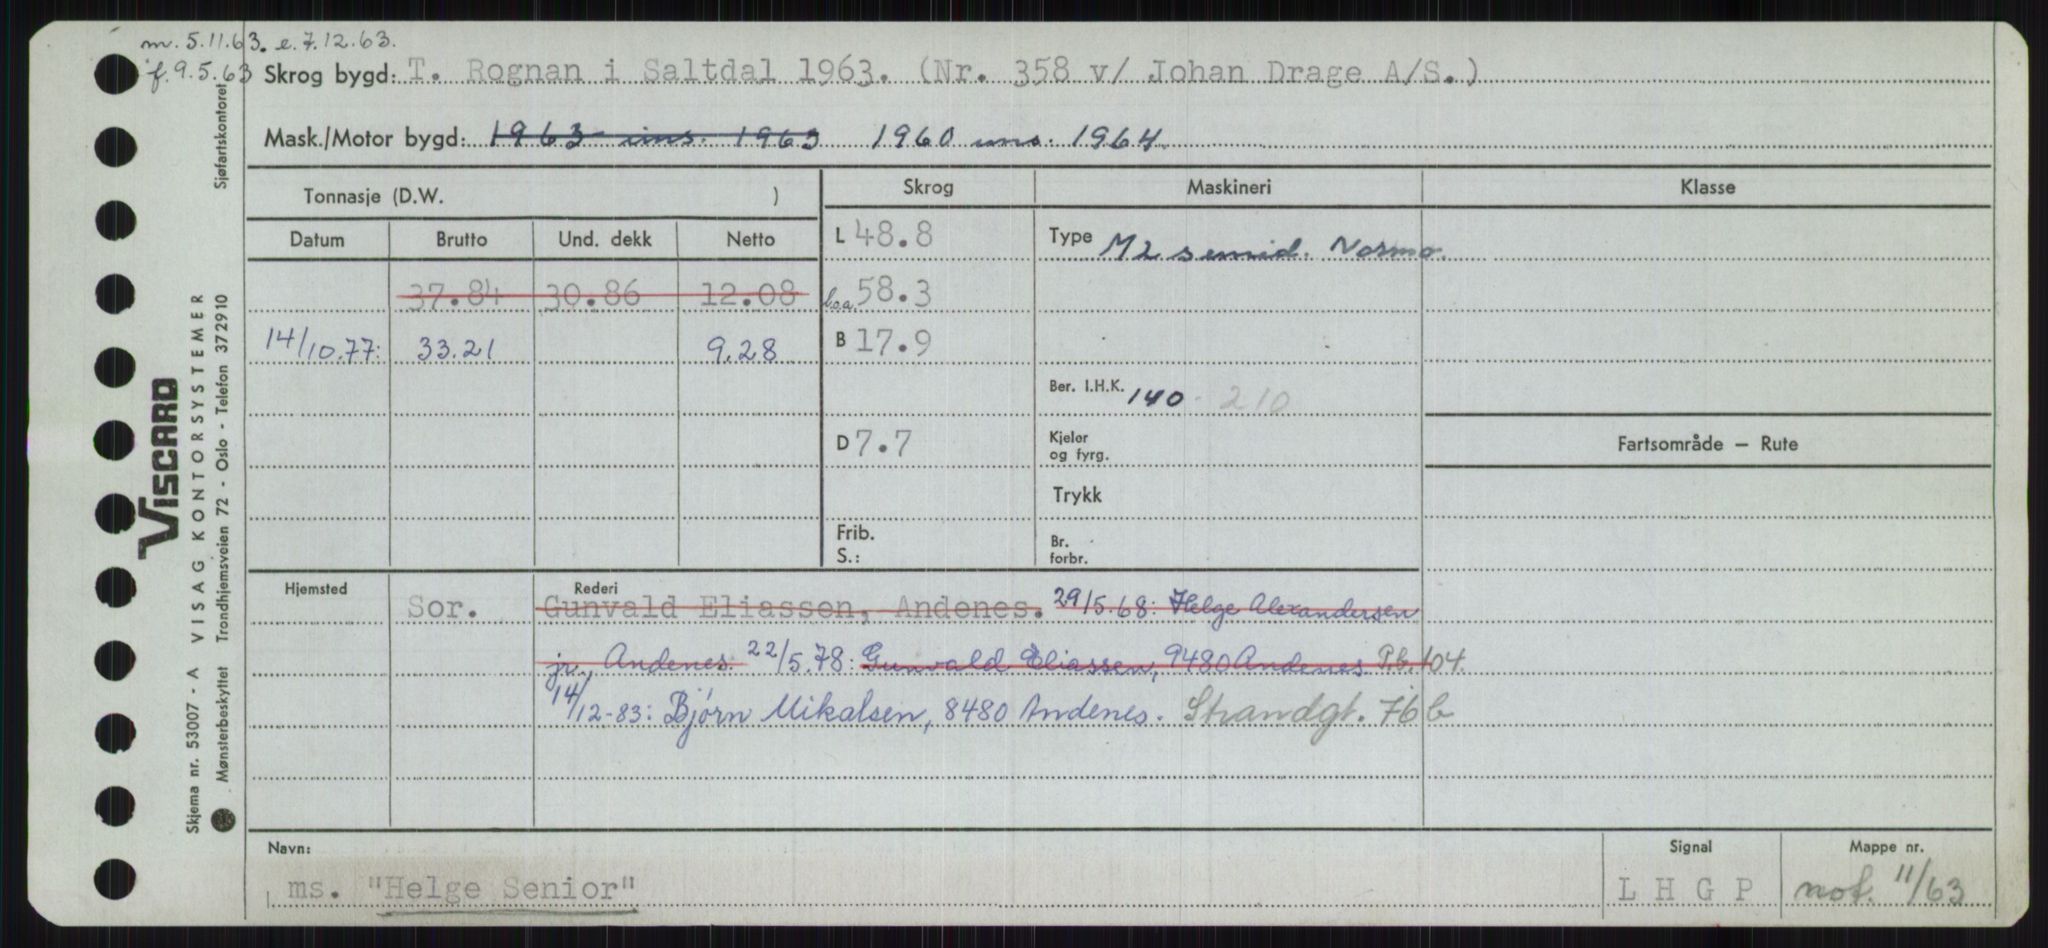 m. 5.11.63. e. 7.12.63.
f. 9.5.63 Skrog bygd: T. Rognan i Saltdal 1963. (Nr. 358 v/ Johan Drage A/S.)
Mask./Motor bygd: 1963 ins. 1963 1960 ins. 1964
Tonnasje (D.W. ) Skrog Maskineri Klasse
Datum Brutto Und. dekk Netto L 48.8 Type M2 semid. Normo.
37.84 30.86 12.08 loa 58.3
14/10.77: 33.21 9.28 B 17.9
Ber. I.H.K. 140. 210
D 7.7 Kjeler Fartsområde — Rute
og fyrg.
Trykk
Frib. Br.
S.: forbr.
Hjemsted Rederi
Sor. Gunvald Eliassen, Andenes. 29/5.68: Helge Alexandersen
jr., Andenes. 22/5.78: Gunvald Eliassen, 9480 Andenes P.b. 104.
14/12-83: Bjørn Mikalsen, 8480 Andenes. Strandgt. 76 b
Navn: Signal Mappe nr.
ms. "Helge Senior" L H G P not. 11/63
Viscard
Skjema nr. 53007 - A VISAG KONTORSYSTEMER
Mønsterbeskyttet Trondhjemsveien 72 - Oslo - Telefon 372910 Sjøfartskontoret